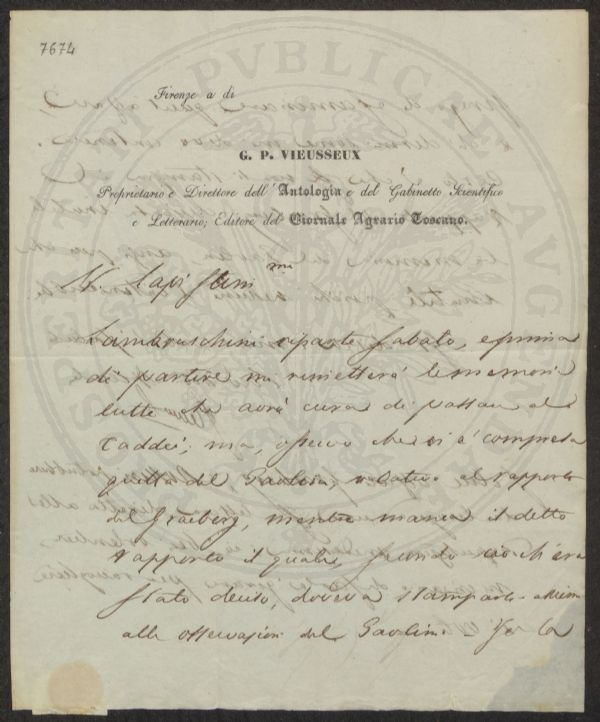 7674
Firenze a di
G. P. VIEUSSEUX
Proprietario e Direttore dell' Antologia e del Gabinetto Scientifico
e Letterario; Editore del Giornale Agrario Toscano.
Lambruschini riparte Sabato, e prima
di partire mi rimetterà le memorie
tutte che avrò cura di passare al
Taddei; ma, osservo che vi è compresa
quella del Paolini, relativa al rapporto
del Graberg, mentre manca il detto
rapporto il quale, secondo ciò ch'era
stato deciso, doveva stamparsi
alle osservazioni del Paolini. Se la